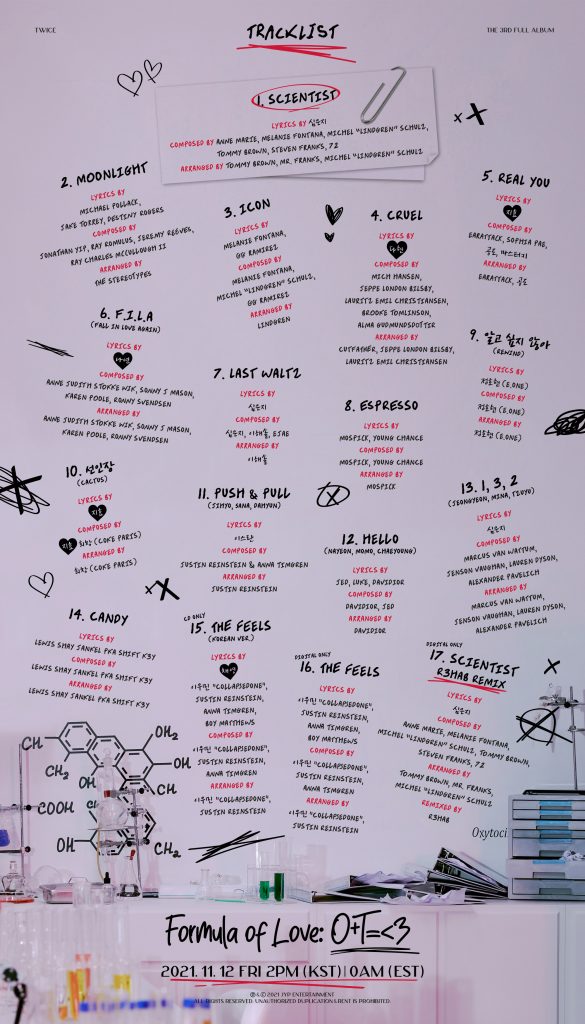 TWICE
TRACKLIST
THE 3RD FULL ALBUM
1. SCIENTIST
LYRICS BY 심은지
COMPOSED BY ANNE MARIE, MELANIE FONTANA, MICHEL "LINDGREN" SCHULZ,
TOMMY BROWN, STEVEN FRANKS, 72
ARRANGED BY TOMMY BROWN, MR. FRANKS, MICHEL "LINDGREN" SCHULZ
2. MOONLIGHT
LYRICS BY
MICHAEL POLLACK,
JAKE TORREY, DESTINY ROGERS
COMPOSED BY
JONATHAN YIP, RAY ROMULUS, JEREMY REEVES,
RAY CHARLES MCCULLOUGH II
ARRANGED BY
THE STEREOTYPES
3. ICON
LYRICS BY
MELANIE FONTANA,
GG RAMIREZ
COMPOSED BY
MELANIE FONTANA,
MICHEL "LINDGREN" SCHULZ,
GG RAMIREZ
ARRANGED BY
LINDGREN
4. CRUEL
LYRICS BY
다현
COMPOSED BY
MICH HANSEN,
JEPPE LONDON BILSBY,
LAURITZ EMIL CHRISTIANSEN,
BROOKE TOMLINSON,
ALMA GUDMUNDSDOTTIR
ARRANGED BY
CUTFATHER, JEPPE LONDON BILSBY,
LAURITZ EMIL CHRISTIANSEN
5. REAL YOU
LYRICS BY
지효
COMPOSED BY
EARATTACK, SOPHIA PAE,
공도, 따스터치
ARRANGED BY
EARATTACK, 공도
6. F.I.L.A
(FALL IN LOVE AGAIN)
LYRICS BY
나연
COMPOSED BY
ANNE JUDITH STOKKE WIK, SONNY J MASON,
KAREN POOLE, RONNY SVENDSEN
ARRANGED BY
ANNE JUDITH STOKKE WIK, SONNY J MASON,
KAREN POOLE, RONNY SVENDSEN
7. LAST WALTZ
LYRICS BY
심은지
COMPOSED BY
심은지, 이해솔, EJAE
ARRANGED BY
이해솔
8. ESPRESSO
LYRICS BY
MOSPICK, YOUNG CHANCE
COMPOSED BY
MOSPICK, YOUNG CHANCE
ARRANGED BY
MOSPICK
9. 알고 싶지 않아
(REWIND)
LYRICS BY
정호현 (E.ONE)
COMPOSED BY
정호현 (E.ONE)
ARRANGED BY
정호현 (E.ONE)
10. 선인장
(CACTUS)
LYRICS BY
지효
COMPOSED BY
지효 최찬 (COKE PARIS)
ARRANGED BY
최찬 (COKE PARIS)
11. PUSH & PULL
(JIHYO, SANA, DAHYUN)
LYRICS BY
이스란
COMPOSED BY
JUSTIN REINSTEIN & ANNA TIMGREN
ARRANGED BY
JUSTIN REINSTEIN
12. HELLO
(NAYEON, MOMO, CHAEYOUNG)
LYRICS BY
JED, LUKE, DAVIDIOR
COMPOSED BY
DAVIDIOR, JED
ARRANGED BY
DAVIDIOR
13. 1, 3, 2
(JEONGYEON, MINA, TZUYU)
LYRICS BY
심은지
COMPOSED BY
MARCUS VAN WATTUM,
JENSON VAUGHAN, LAUREN DYSON,
ALEXANDER PAVELICH
ARRANGED BY
MARCUS VAN WATTUM,
JENSON VAUGHAN, LAUREN DYSON,
ALEXANDER PAVELICH
14. CANDY
LYRICS BY
LEWIS SHAY JANKEL PKA SHIFT K3Y
COMPOSED BY
LEWIS SHAY JANKEL PKA SHIFT K3Y
ARRANGED BY
LEWIS SHAY JANKEL PKA SHIFT K3Y
CD ONLY
15. THE FEELS
(KOREAN VER.)
LYRICS BY
이우민 "COLLAPSEDONE",
JUSTIN REINSTEIN,
ANNA TIMGREN,
BOY MATTHEWS
COMPOSED BY
이우민 "COLLAPSEDONE",
JUSTIN REINSTEIN,
ANNA TIMGREN
ARRANGED BY
이우민 "COLLAPSEDONE",
JUSTIN REINSTEIN
DIGITAL ONLY
16. THE FEELS
LYRICS BY
이우민 "COLLAPSEDONE",
JUSTIN REINSTEIN,
ANNA TIMGREN,
BOY MATTHEWS
COMPOSED BY
이우민 "COLLAPSEDONE",
JUSTIN REINSTEIN,
ANNA TIMGREN
ARRANGED BY
이우민 "COLLAPSEDONE",
JUSTIN REINSTEIN
DIGITAL ONLY
17. SCIENTIST
R3HAB REMIX
LYRICS BY
심은지
COMPOSED BY
ANNE MARIE, MELANIE FONTANA,
MICHEL "LINDGREN" SCHULZ, TOMMY BROWN,
STEVEN FRANKS, 72
ARRANGED BY
TOMMY BROWN, MR. FRANKS,
MICHEL "LINDGREN" SCHULZ
REMIXED BY
R3HAB
CH
OH2
CH2
OH
OH
COOH
CH
OH
CH2
Oxytoci
Formula of Love: O+T=<3
2021. 11. 12 FRI 2PM (KST) | 0AM (EST)
℗&© 2021 JYP ENTERTAINMENT
ALL RIGHTS RESERVED. UNAUTHORIZED DUPLICATION & RENT IS PROHIBITED.